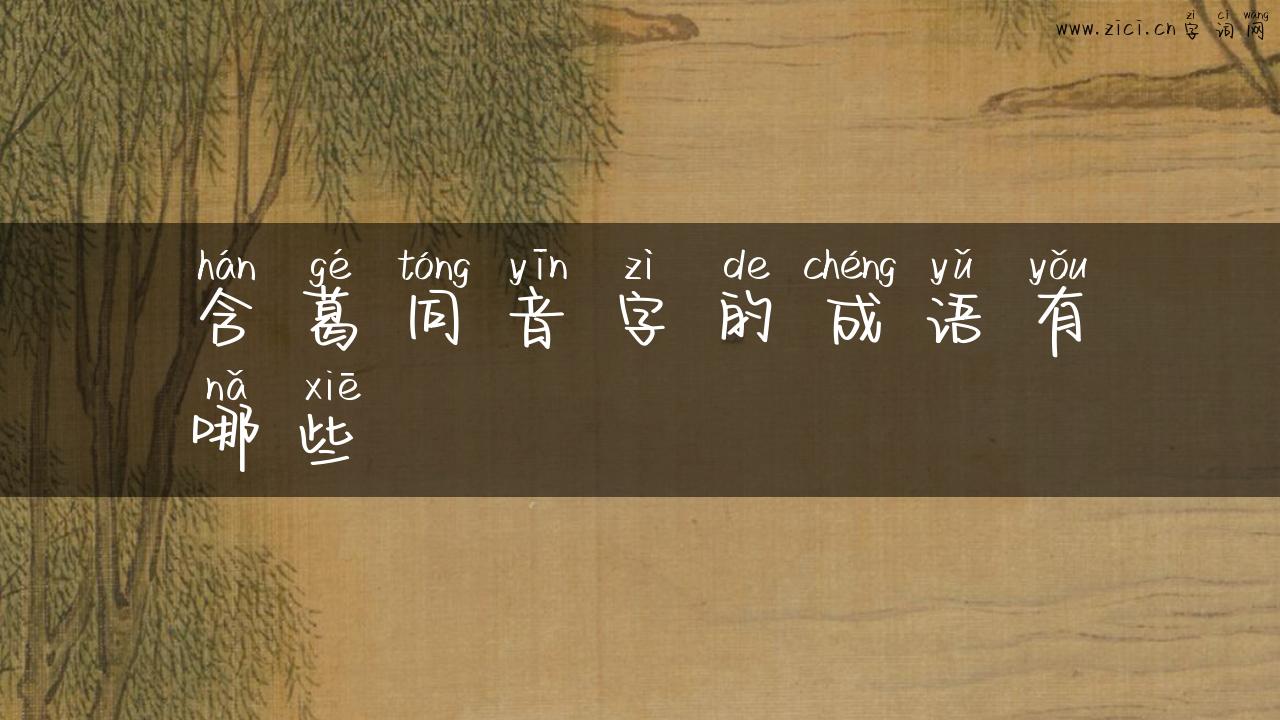 zì cí wǎng
www.zici.cn字词网
hán gé tóng yīn zì de chéng yǔ yǒu
含葛同音字的成语有
nǎ xiē
哪些